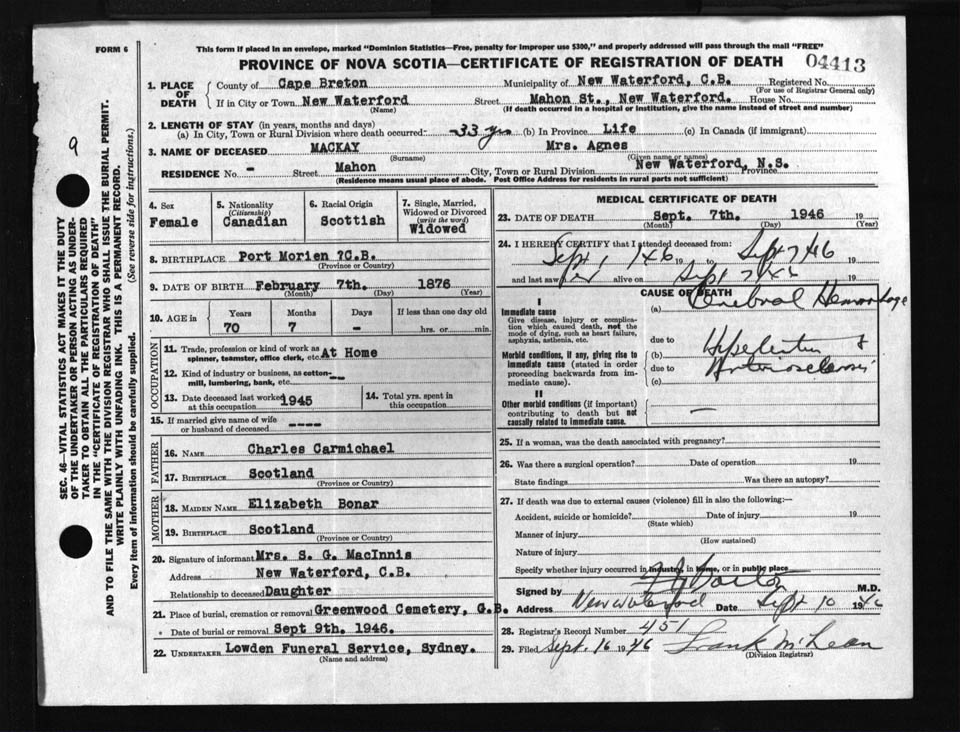 FORM 6
This form if placed in an envelope, marked "Dominion Statistics—Free, penalty for improper use $300," and properly addressed will pass through the mail "FREE"
PROVINCE OF NOVA SCOTIA—CERTIFICATE OF REGISTRATION OF DEATH
04413
1. PLACE OF DEATH
County of Cape Breton Municipality of New Waterford, C.B. Registered No.
(For use of Registrar General only)
If in City or Town New Waterford Street Mahon St., New Waterford. House No.
(Name) (If death occurred in a hospital or institution, give the name instead of street and number)
2. LENGTH OF STAY (in years, months and days)
(a) In City, Town or Rural Division where death occurred 33 yrs (b) In Province Life (c) In Canada (if immigrant)
3. NAME OF DECEASED MACKAY Mrs. Agnes
(Surname) (Given name or names)
RESIDENCE No. - Street Mahon City, Town or Rural Division New Waterford, N.S. Province
(Residence means usual place of abode. Post Office Address for residents in rural parts not sufficient)
4. Sex Female
5. Nationality (Citizenship) Canadian
6. Racial Origin Scottish
7. Single, Married, Widowed or Divorced (write the word) Widowed
8. BIRTHPLACE Port Morien ?C.B.
(Province or Country)
9. DATE OF BIRTH February 7th. 1876
(Month) (Day) (Year)
10. AGE in Years Months Days If less than one day old
70 7 - hrs. or min.
OCCUPATION
11. Trade, profession or kind of work as spinner, teamster, office clerk, etc. At Home
12. Kind of industry or business, as cotton-mill, lumbering, bank, etc. --
13. Date deceased last worked at this occupation 1945
14. Total yrs. spent in this occupation
15. If married give name of wife or husband of deceased ----
FATHER
16. NAME Charles Carmichael
17. BIRTHPLACE Scotland
(Province or Country)
MOTHER
18. MAIDEN NAME Elizabeth Bonar
19. BIRTHPLACE Scotland
(Province or Country)
20. Signature of informant Mrs. S. G. MacInnis
Address New Waterford, C.B.
Relationship to deceased Daughter
21. Place of burial, cremation or removal Greenwood Cemetery, G.B.
Date of burial or removal Sept 9th. 1946.
22. UNDERTAKER Lowden Funeral Service, Sydney.
(Name and address)
MEDICAL CERTIFICATE OF DEATH
23. DATE OF DEATH Sept. 7th. 1946 19
(Month) (Day) (Year)
24. I HEREBY CERTIFY that I attended deceased from:
Sept 1 46 Sept 7 46 19
and last saw alive on Sept 7 46 19
CAUSE OF DEATH
I
Immediate cause
Give disease, injury or complication which caused death, not the mode of dying, such as heart failure, asphyxia, asthenia, etc.
(a) Cerebral Hemorrhage
due to
Morbid conditions, if any, giving rise to immediate cause (stated in order proceeding backwards from immediate cause).
(b) Hypertension &
due to Arteriosclerosis
(c)
II
Other morbid conditions (if important) contributing to death but not causally related to immediate cause.
—
25. If a woman, was the death associated with pregnancy?
26. Was there a surgical operation? Date of operation 19
State findings Was there an autopsy?
27. If death was due to external causes (violence) fill in also the following:—
Accident, suicide or homicide? Date of injury 19
(State which)
Manner of injury
(How sustained)
Nature of injury
Specify whether injury occurred in industry, in home, or in public place
Signed by M.D.
Address New Waterford Date Sept 10 1946
28. Registrar's Record Number 451
29. Filed Sept. 16 1946 Frank McLean
(Division Registrar)
9
SEC. 46—VITAL STATISTICS ACT MAKES IT THE DUTY
OF THE UNDERTAKER OR PERSON ACTING AS UNDERTAKER
TO OBTAIN ALL THE PARTICULARS REQUIRED
IN THE "CERTIFICATE OF REGISTRATION OF DEATH"
AND TO FILE THE SAME WITH THE DIVISION REGISTRAR WHO SHALL ISSUE THE BURIAL PERMIT.
WRITE PLAINLY WITH UNFADING INK. THIS IS A PERMANENT RECORD.
Every item of information should be carefully supplied. (See reverse side for instructions.)